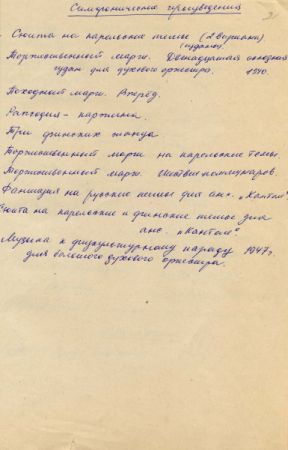 Симфонические произведения
Сюита на карельские темы (2 варианта)
(издана)
Торжественный марш. Двенадцатая
годам для духового оркестра. 1940.
Походный марш. Вперёд.
Рапсодия - картинка.
Три финских танца
Торжественный марш на карельские темы.
Торжественный марш. Шествие коммунаров.
Фантазия на русские темы для анс. „Кантеле"
Сюита на карельские и финские темы для
анс. „Кантеле"
Музыка к физкультурному параду 1947 г.
для большого духового оркестра.